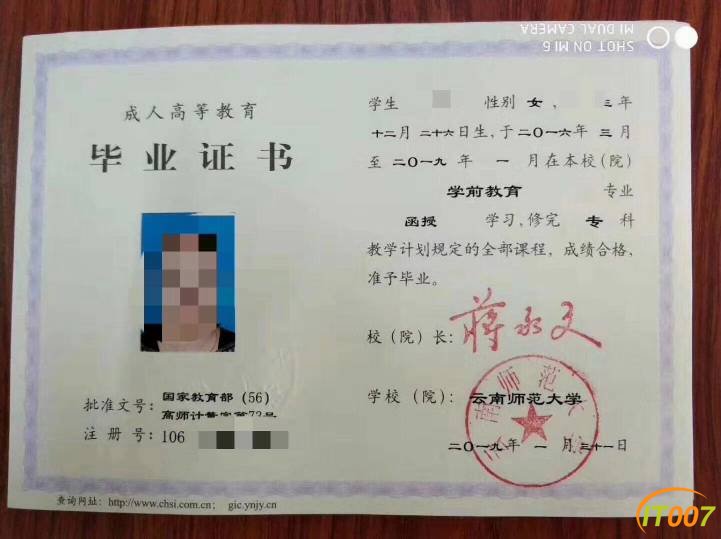 SHOT ON MI 6
MI DUAL CAMERA
成人高等教育
毕业证书
批准文号：国家教育部（56）
高师计
注册号：106
查询网址：http://www.chsi.com.cn； gic.ynjy.cn
学生 性别 女， 三年
十二月二十六日生，于二〇一六年 三月
至二〇一九年 一月在本校（院）
学前教育 专业
函授 学习，修完 专 科
教学计划规定的全部课程，成绩合格，
准予毕业。
校（院）长：蒋永文
学校（院）：云南师范大学
二〇一九年 一月三十一日
IT007